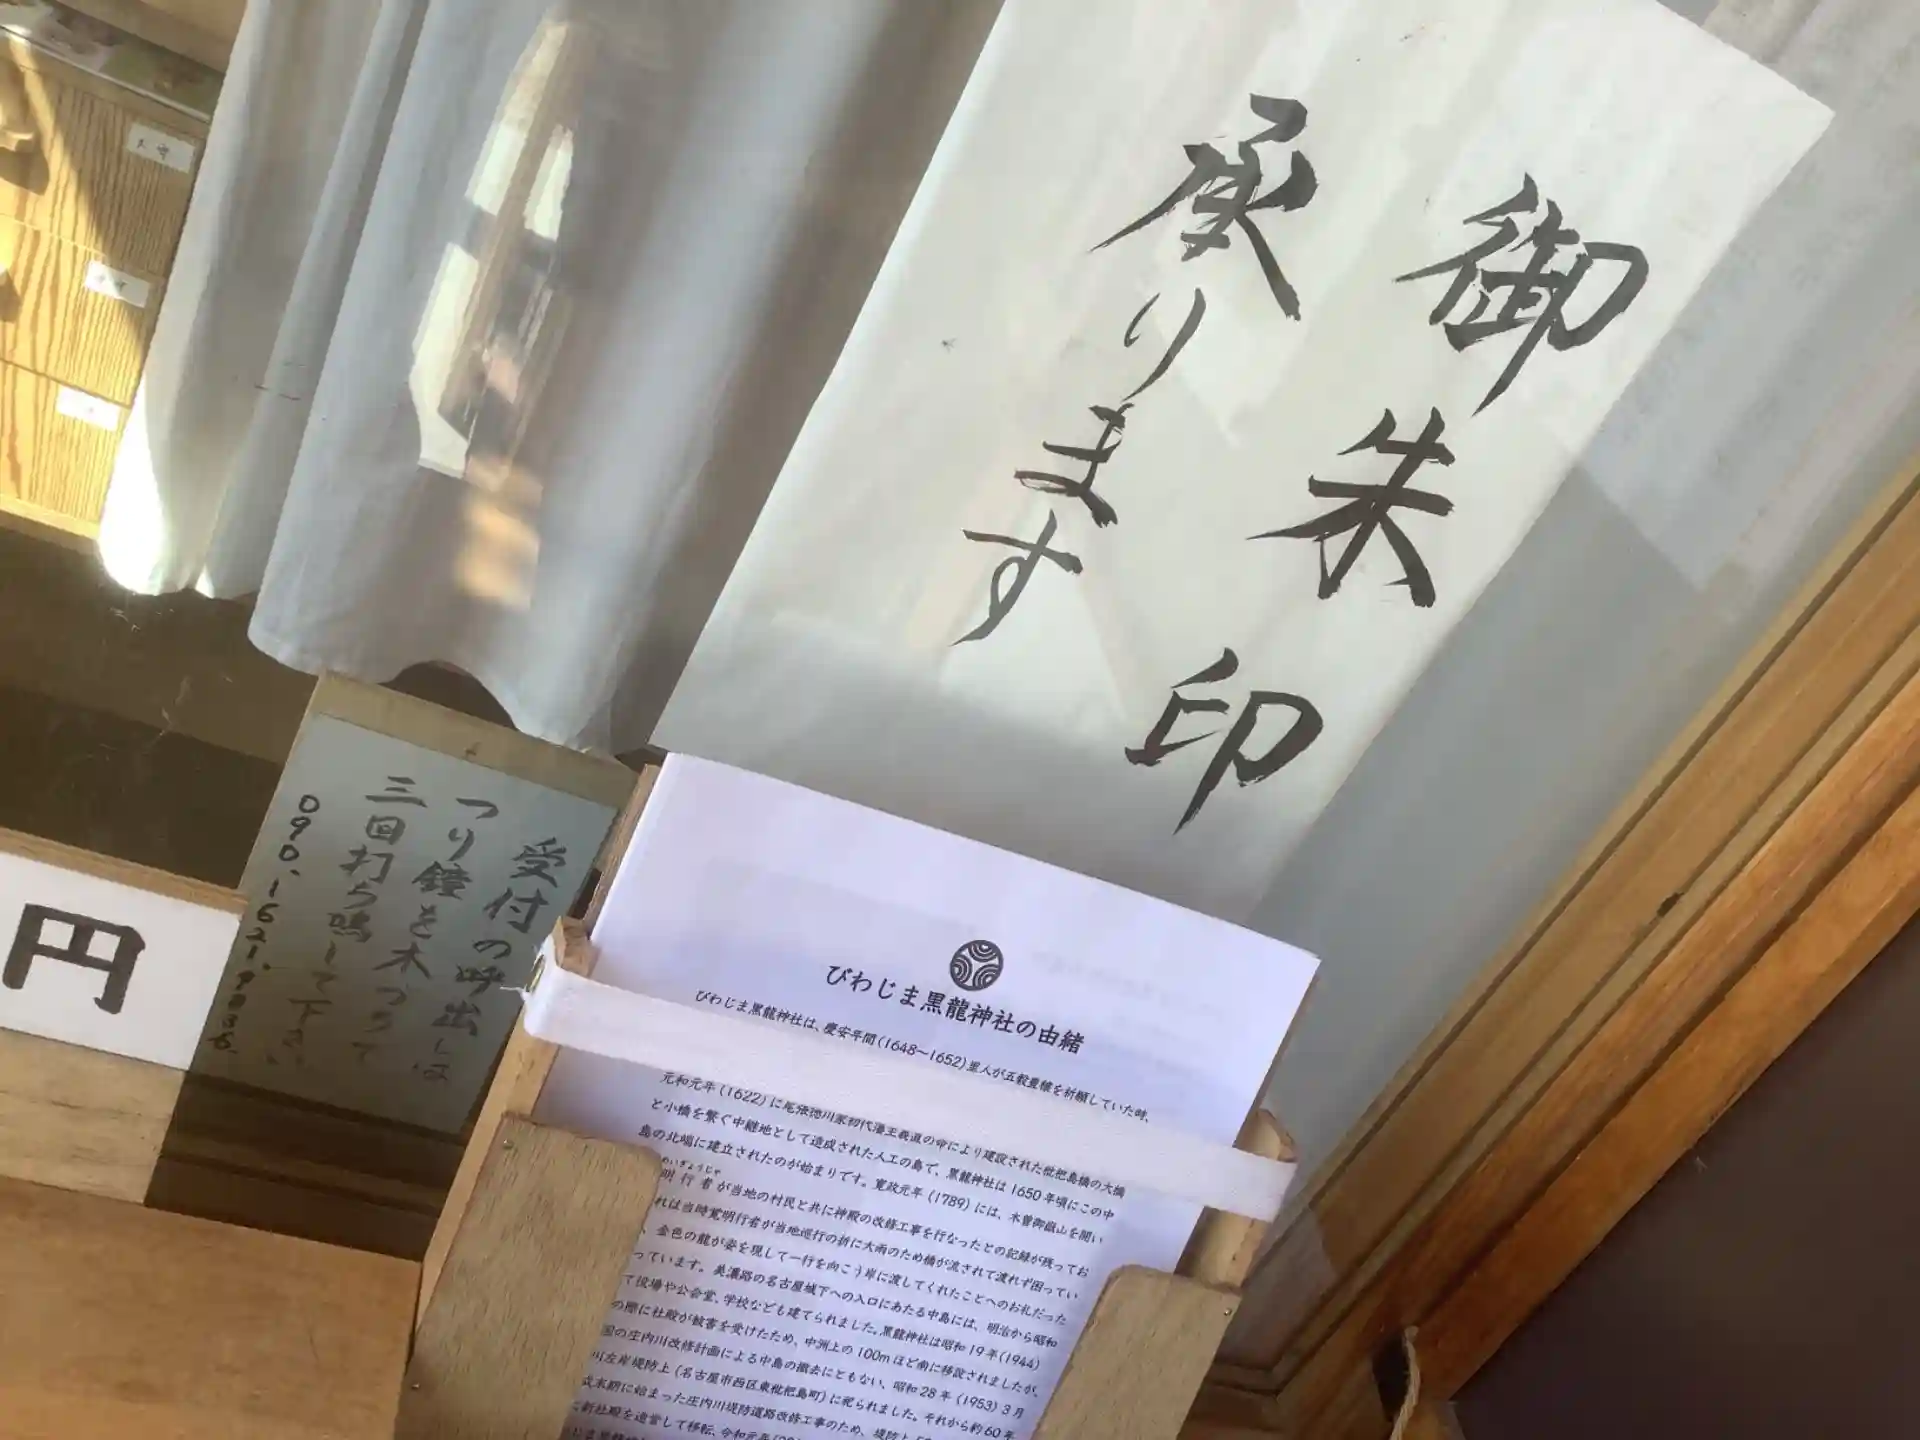 御朱印
承ります
受付の呼出しは
つり鐘を木づちで
三回打ち鳴して下さい
円
びわじま黒龍神社の由緒
びわじま黒龍神社は、慶安年間(1648〜1652)里人が五穀豊穣を祈願していた時、
元和元年(1622)に尾張徳川家初代藩主義直の命により建設された枇杷島橋の大橋
と小橋を繋ぐ中継地として造成された人工の島で、黒龍神社は1650年頃にこの中
島の北端に建立されたのが始まりです。寛政元年(1789)には、木曽御嶽山を開い
めいぎょうじゃ
明行者が当地の村民と共に神殿の改修工事を行なったとの記録が残ってお
れは当時覚明行者が当地巡行の折に大雨のため橋が流されて渡れず困ってい
、金色の龍が姿を現して一行を向こう岸に渡してくれたことへのお礼だった
っています。美濃路の名古屋城下への入口にあたる中島には、明治から昭和
て役場や公会堂、学校なども建てられました。黒龍神社は昭和19年(1944)
の際に社殿が被害を受けたため、中洲上の100mほど南に移設されましたが、
国の庄内川改修計画による中島の撤去にともない、昭和28年(1953)3月
川左岸堤防上(名古屋市西区東枇杷島町)に祀られました。それから約60年
成末期に始まった庄内川堤防道路改修工事のため、堤防上
新社殿を造営して移転、令和元年